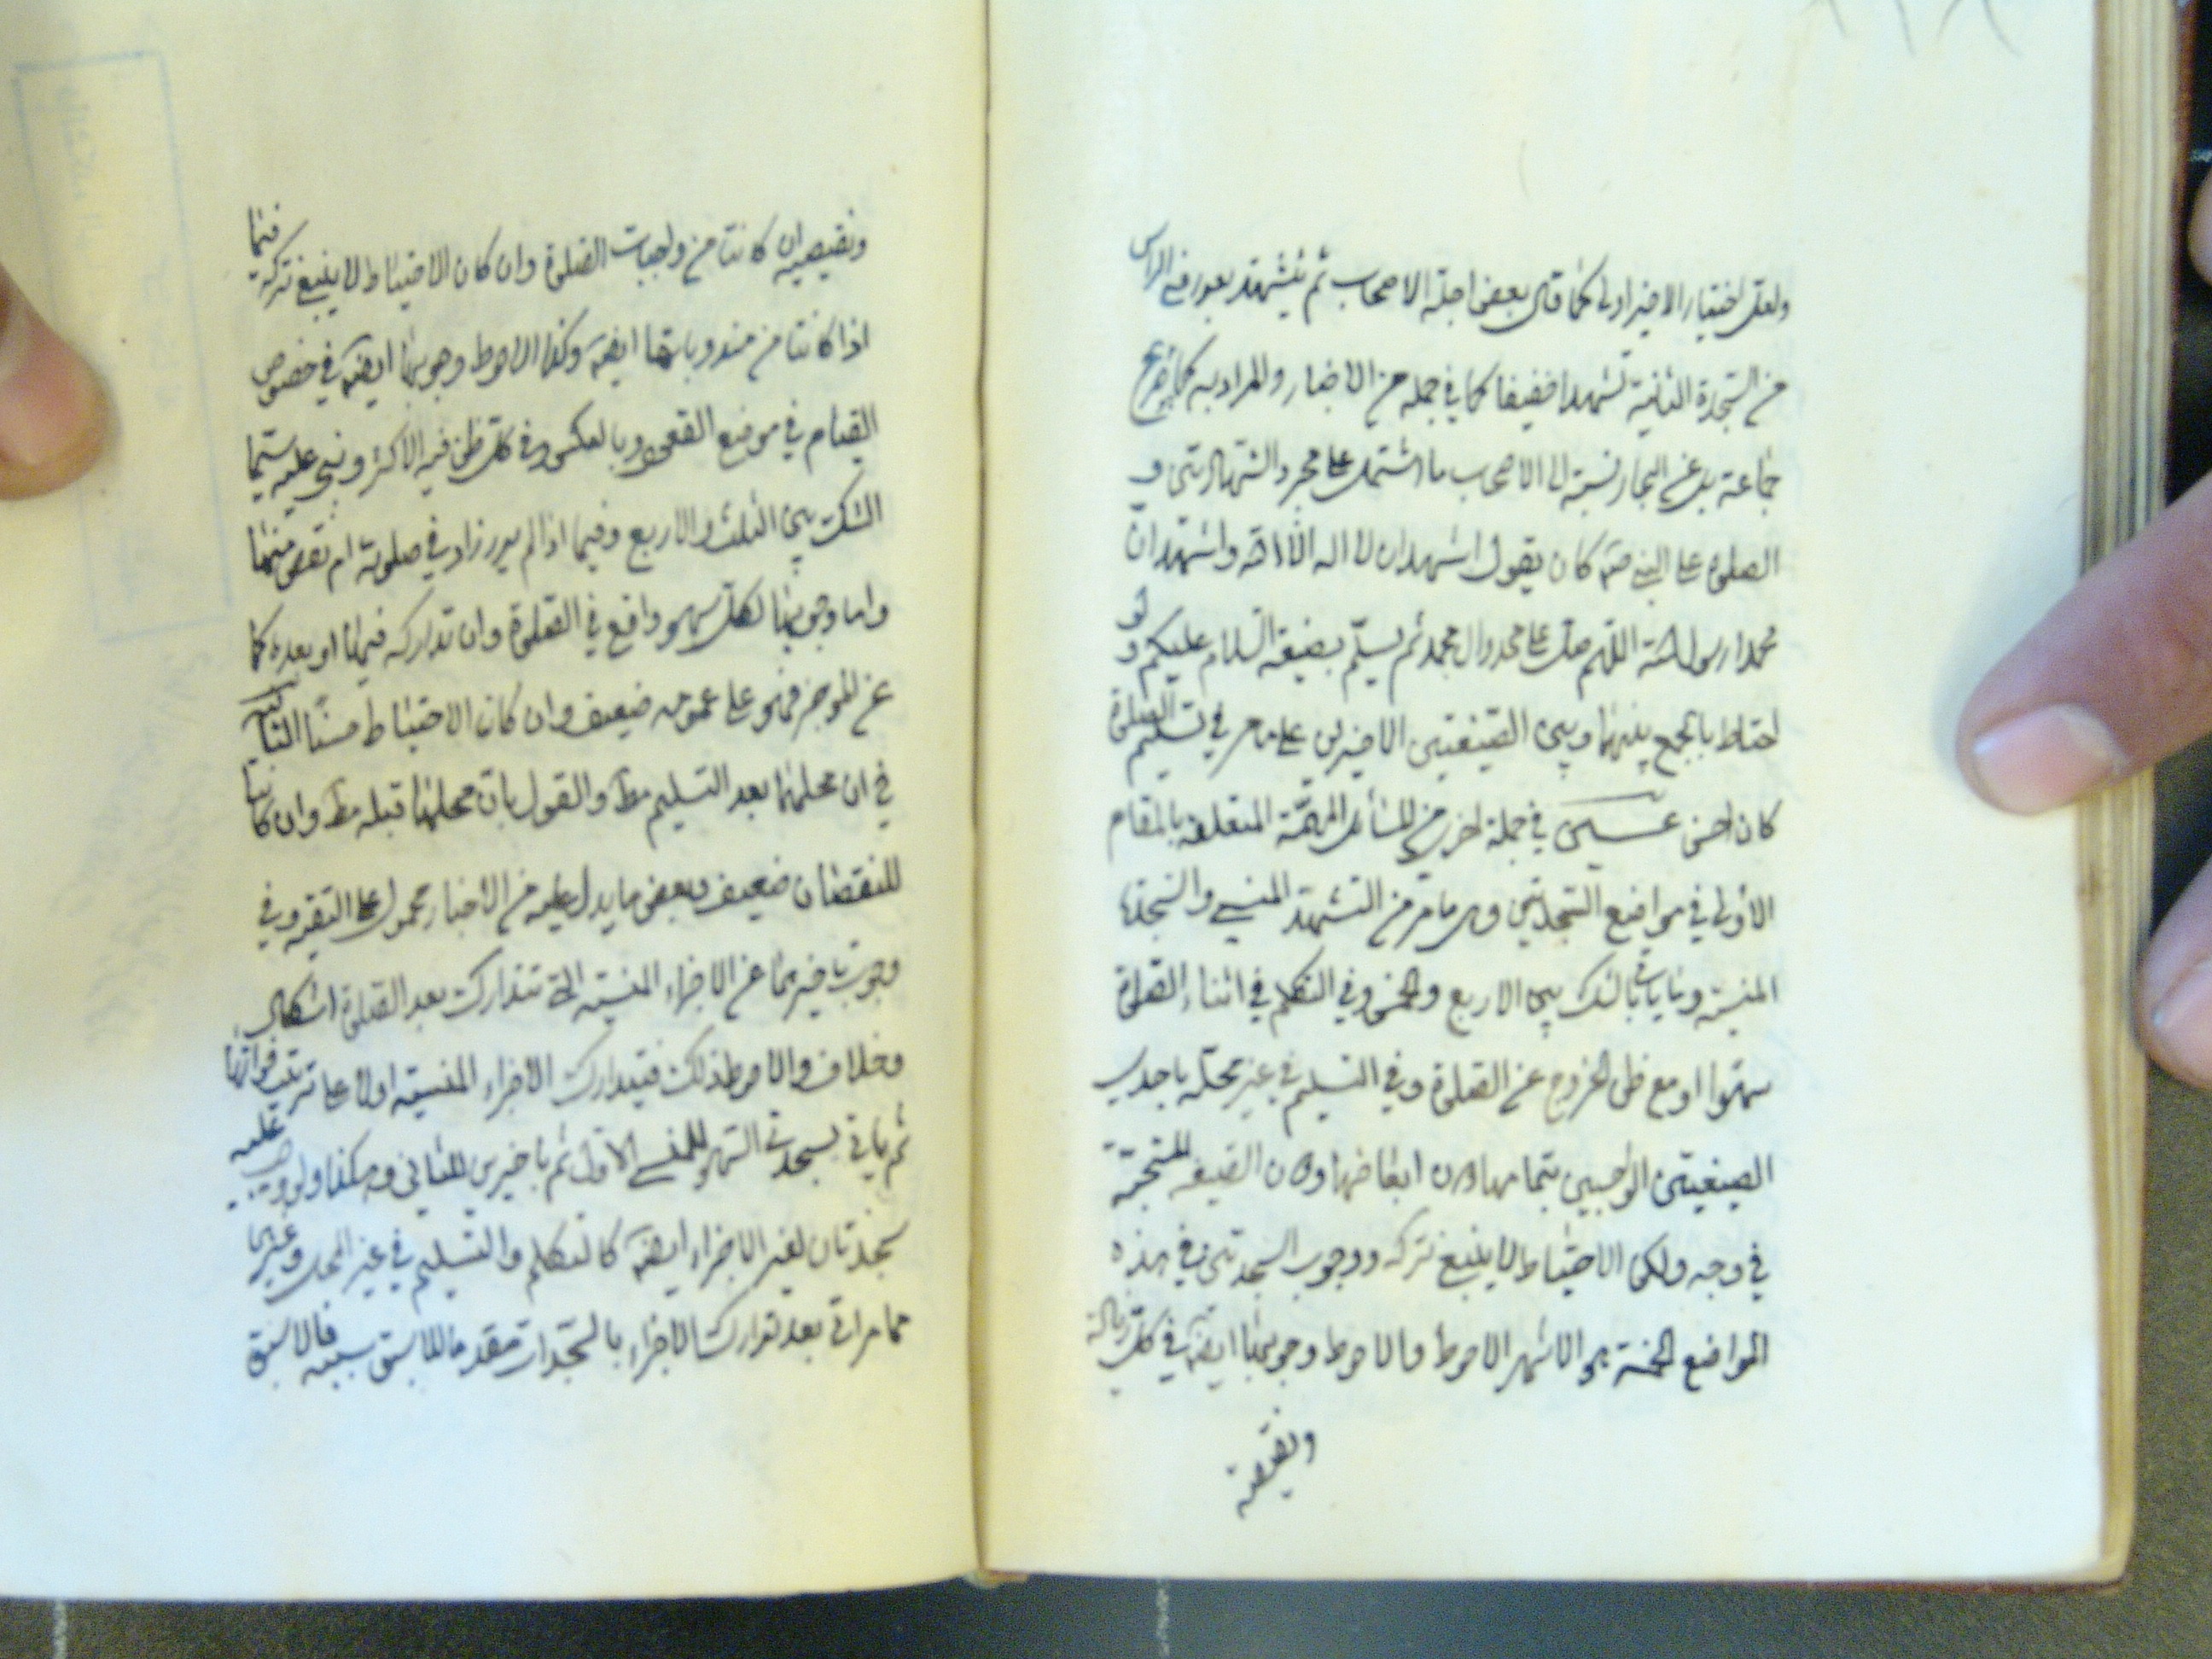 ولعل اختيار الاخير اولى كما قال بعض اجلة الاصحاب ثم يتشهد بعد رفع الراس
من السجدة الثانية تشهدا خفيفا كما في جملة من الاخبار والمراد به كما صرح
جماعة بل عن البحار نسبته الى الاصحاب ما اشتمل على مجرد الشهادتين و
الصلوة على النبي صه كان يقول اشهد ان لا اله الا الله واشهد ان
محمدا رسول الله اللهم صل على محمد وال محمد ثم يسلم بصيغة السلام عليكم ولو
احتاط بالجمع بينهما وبين الصيغتين الاخيرين على ما مر في تسليم الصلوة
كان احسن في جملة اخرى من المسائل المهمة المتعلقة بالمقام
الاولى في مواضع السجدتين وهى ما مر من التشهد المنسي والسجدة
المنسية وبالشك بين الاربع والخمس وفي التكلم في اثناء الصلوة
سهوا او مع ظن الخروج عن الصلوة وفي التسليم في غير محله باحدى
الصيغتين الواجبين بتمامها دون ابعاضها ودون الصيغة المستحبة
في وجه ولكن الاحتياط لا ينبغي تركه ووجوب السجدتين في هذه
المواضع الخمسة هو الاشهر الاحوط والاحوط وجوبهما ايضا في كل زيادة
ونقيصة
ونقيصة ان كانتا من واجبات الصلوة وان كان الاحتياط لا ينبغي تركه فيما
اذا كانتا من مندوباتها ايضا وكذا الاحوط وجوبهما ايضا في خصوص
القيام في موضع القعود وبالعكس وفي كل ظن فيه الاكثر وبنى عليه سيما
الشك بين الثلث والاربع وفيما اذا لم يدر زاد في صلوته ام نقص منها
واما وجوبهما لكل سهو واقع في الصلوة وان تداركه فيها او بعده كما
عن الموجز فهو على عمومه ضعيف وان كان الاحتياط حسنا الثانية
في ان محلهما بعد التسليم مط والقول بان محلهما قبله مط وان كانتا
للنقصان ضعيف وبعض ما يدل عليه من الاخبار محمول على التقية وفي
وجوب تاخيرهما عن الاجزاء المنسية التي تتدارك بعد الصلوة اشكال
وخلاف والاحوط ذلك فيتدارك الاجزاء المنسية اولا على ترتيب فواتها
ثم ياتي بسجدتي السهو للمنسي الاول ثم باخيرين للثاني وهكذا ولو وجب عليه
سجدتان لغير الاجزاء ايضا كالتكلم والتسليم في غير المحل وغيرها
مما مر اتى بعد تدارك الاجزاء بالسجدات مقدما للاسبق سببه فالاسبق